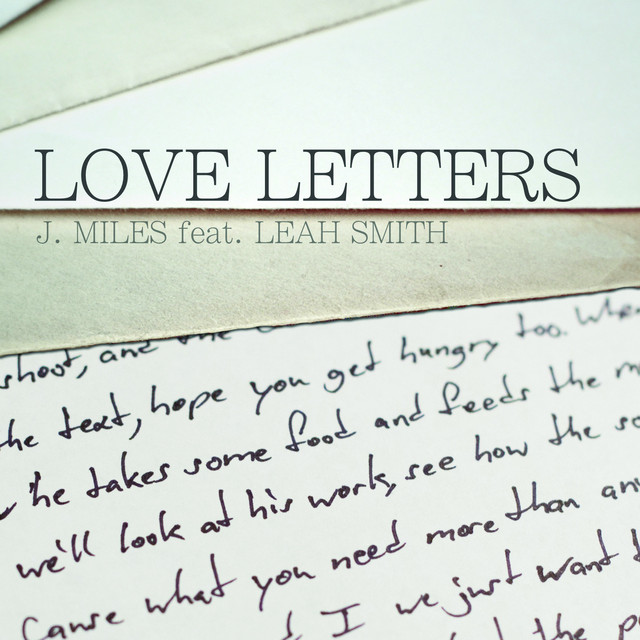 LOVE LETTERS
J. MILES feat. LEAH SMITH
shoot, and the
the text, hope you get hungry too. When
he takes some food and feeds the
we'll look at his work, see how the
Cause what you need more than
I we just want
the